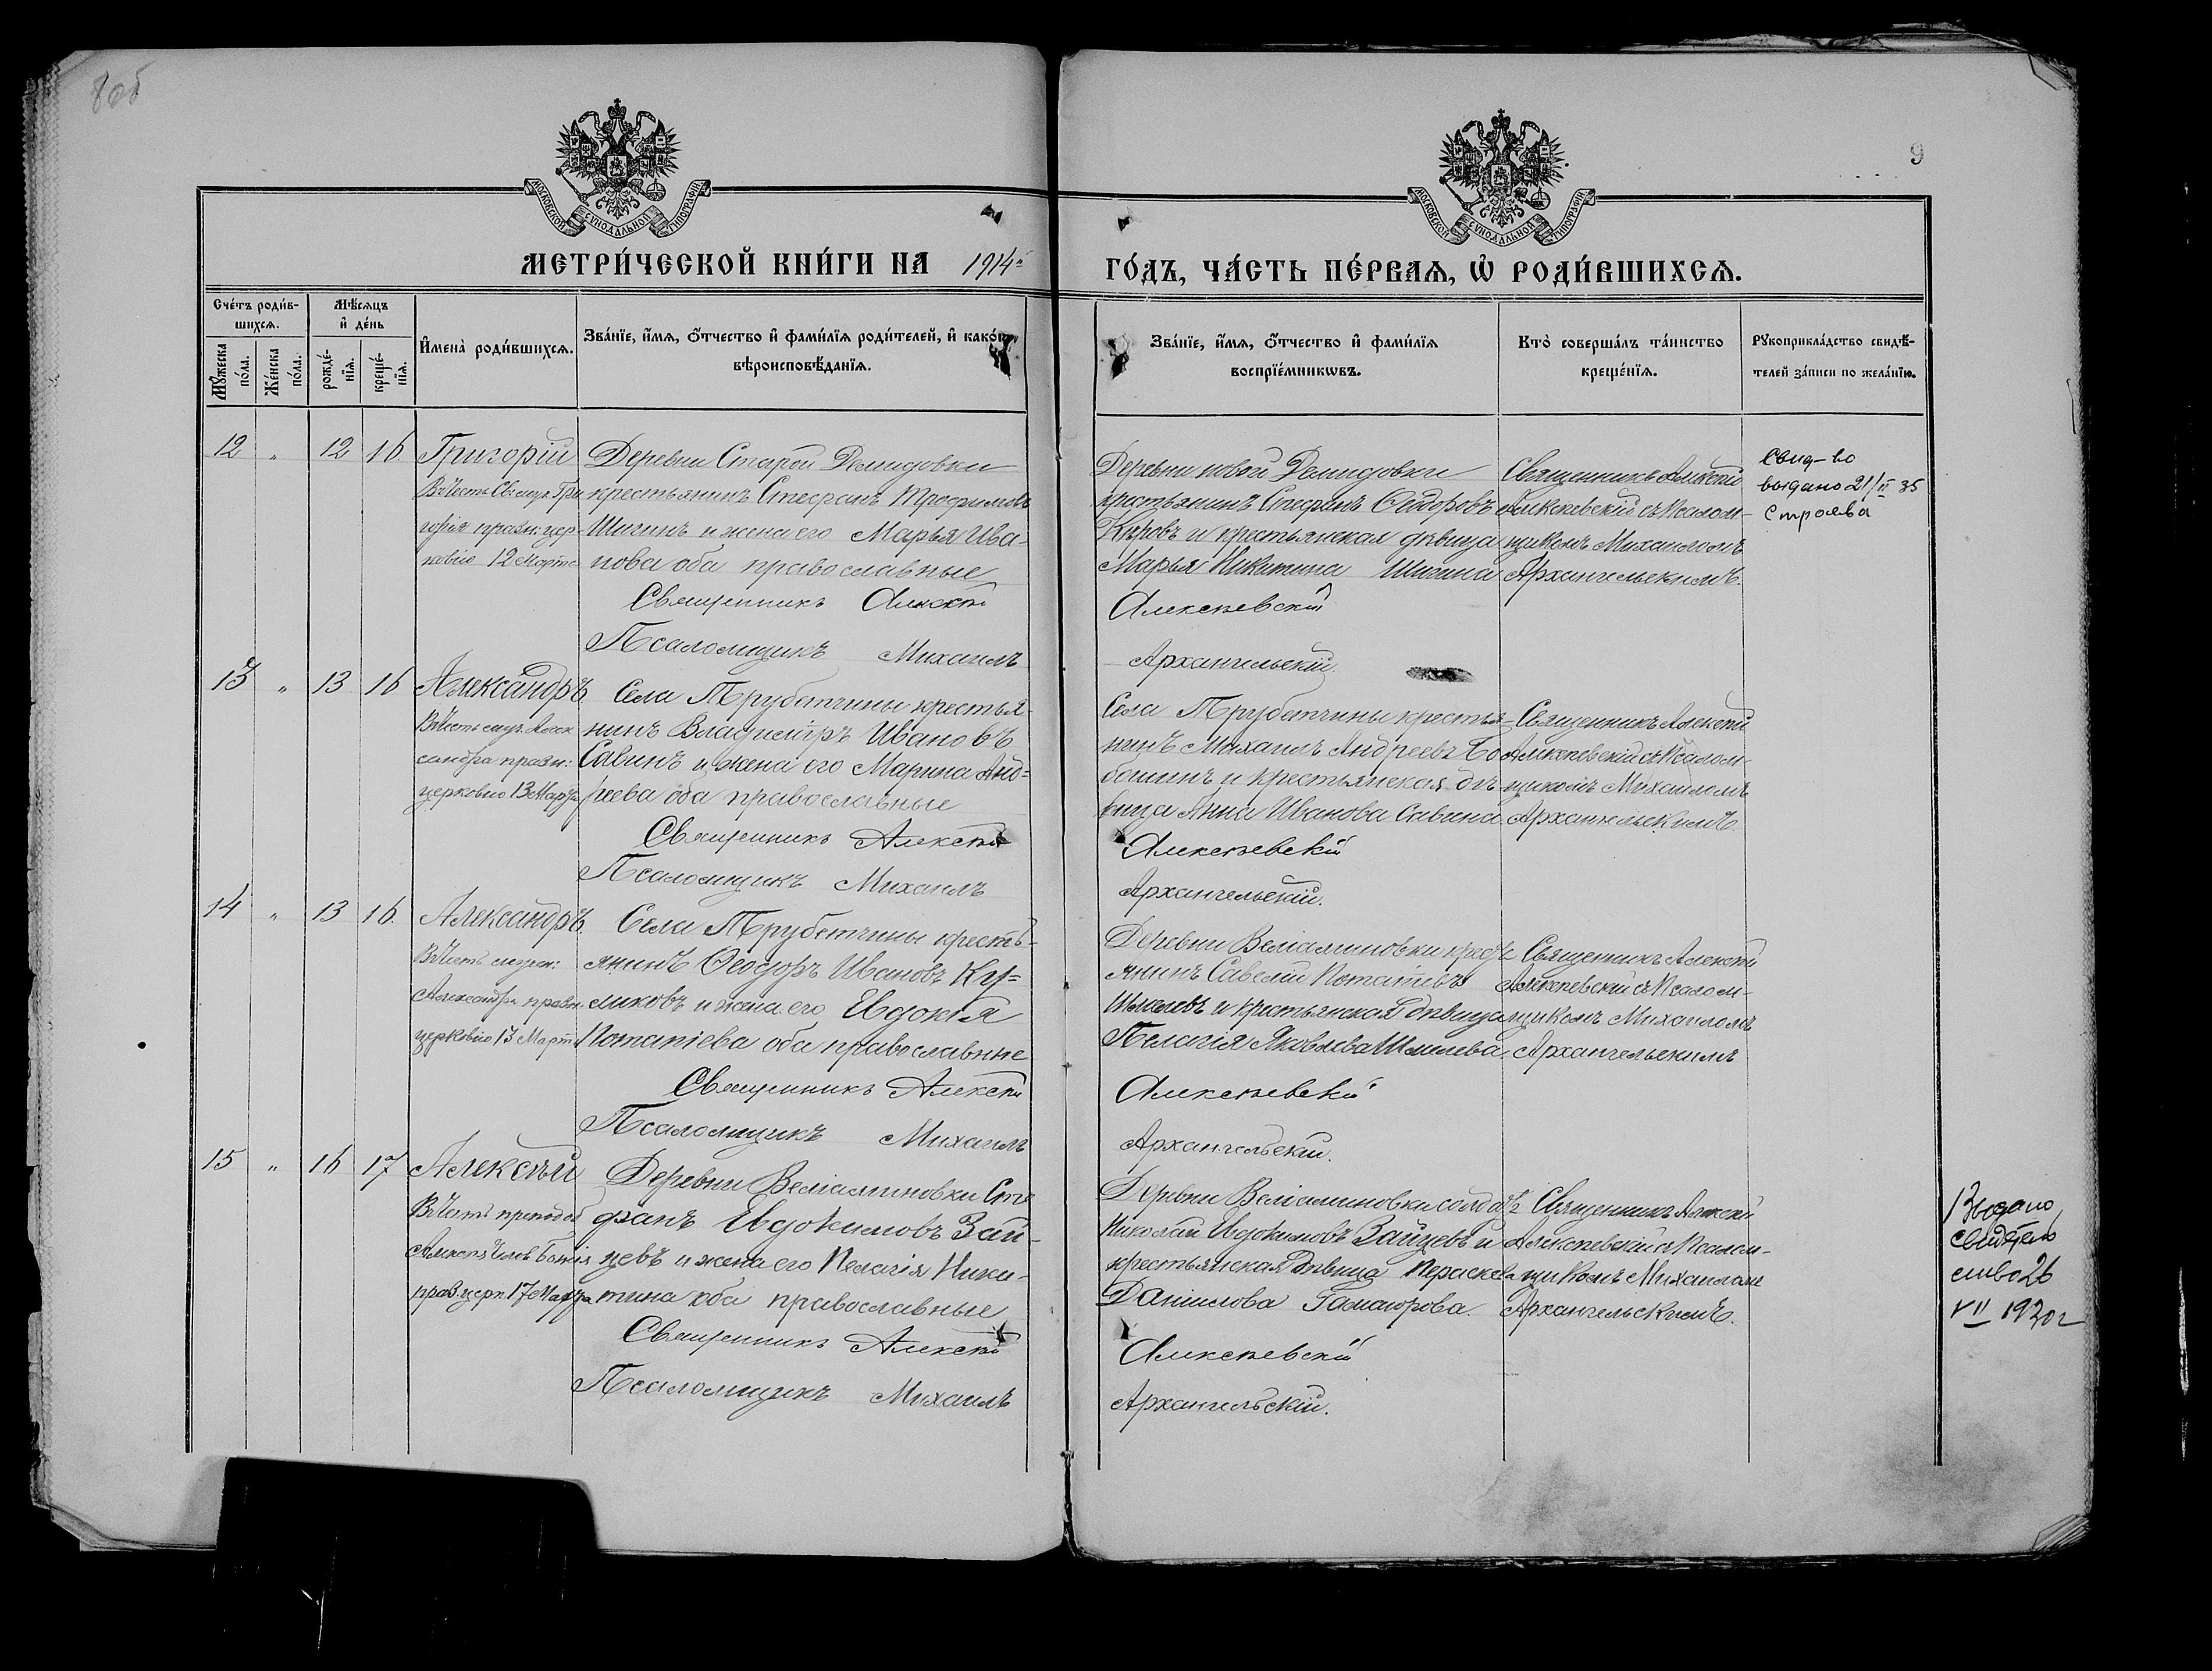 8об
9
МОСКОВСКОЙ СѴНОДАЛЬНОЙ ТИПОГРАФІИ
МОСКОВСКОЙ СѴНОДАЛЬНОЙ ТИПОГРАФІИ
МЕТРИ́ЧЕСКОЙ КНИ́ГИ НА 1914й
ГО́ДЪ, ЧА́СТЬ ПЕ́РВАѦ, Ѡ҆ РОДИ́ВШИХСѦ.
Сче́тъ роди́в-
шихсѧ.
Мꙋ́жеска по́ла.
Же́нска по́ла.
Мѣ́сѧцъ
и҆ де́нь
рожде́-
нїѧ.
креще́-
нїѧ.
И҆мена̀ роди́вшихсѧ.
Зва́нїе, и҆́мѧ, ѻ҆́тчество и҆ фами́лїѧ роди́телей, и҆ како́гѡ
вѣроисповѣ́данїѧ.
Зва́нїе, и҆́мѧ, ѻ҆́тчество и҆ фами́лїѧ
воспрїе́мникѡвъ.
Кто̀ соверша́лъ та́инство
креще́нїѧ.
Рꙋкоприкла́дство свидѣ́-
телей за́писи по жела́нїю.
12 " 12 16
Григорій
Въ честь Св. муч. Гри
горія празн. цер-
ковію 12 Марта
Деревни Старой Демидовки
крестьянинъ Стефанъ Трофимовъ
Шигинъ и жена его Марья Ива-
нова оба православные
Священникъ Алексѣй
Псаломщикъ Михаилъ
Деревни новой Демидовки
крестьянинъ Стефанъ Ѳедоровъ
и крестьянская дѣвица
Марья Никитина Шигина
Алексѣевскій
Архангельскій.
Священникъ Алексѣй
Алексѣевскій съ Псалом-
щикомъ Михаиломъ
Архангельскимъ.
Свид-во
выдано 21/II 35
Строева
13 " 13 16
Александръ.
Въ честь муч. Алек
сандра празн:
церковію 13 Марта
Села Трубетчины крестья-
нинъ Владиміръ Ивановъ
Савинъ и жена его Марина Анд-
реева оба православные
Священникъ Алексѣй
Псаломщикъ Михаилъ
Села Трубетчины крестья-
нинъ Михаилъ Андреевъ Бо
и крестьянская дѣ-
вица Анна Иванова Савина.
Алексѣевскій
Архангельскій.
Священникъ Алексѣй
Алексѣевскій съ Псалом-
щикомъ Михаиломъ
Архангельскимъ.
14 " 13 16.
Александръ.
Въ честь
Александра празн
церковію 13 Март.
Села Трубетчины кресть-
янинъ Ѳеодоръ Ивановъ Ку-
ликовъ и жена его Евдокія
Потапіева оба православные
Священникъ Алексѣй
Псаломщикъ Михаилъ
Деревни Веліаминовки кресть
янинъ Савелій Потапіевъ
Шмелевъ и крестьянская дѣвица
Пелагія Яковлева Шмелева.
Алексѣевскій
Архангельскій.
Священникъ Алексѣй
Алексѣевскій съ Псалом-
щикомъ Михаиломъ
Архангельскимъ
15 " 16 17
Алексѣй
Въ честь преподоб
Алексѣя Челов. Божія
праз. церк. 17 Марта
Деревни Веліаминовки Сте
фанъ Евдокимовъ Зай-
цевъ и жена его Пелагія Ники-
тина оба православные
Священникъ Алексѣй
Псаломщикъ Михаилъ
Деревни Веліаминовки солдатъ
Николай Евдокимовъ Зайцевъ и
крестьянская дѣвица Параскева
Даніилова
Алексѣевскій
Архангельскій.
Священникъ Алексѣй
Алексѣевскій съ Псалом-
щикомъ Михаиломъ
Архангельскимъ.
Выдано
свидѣтель
ство 26
VII 1920 г